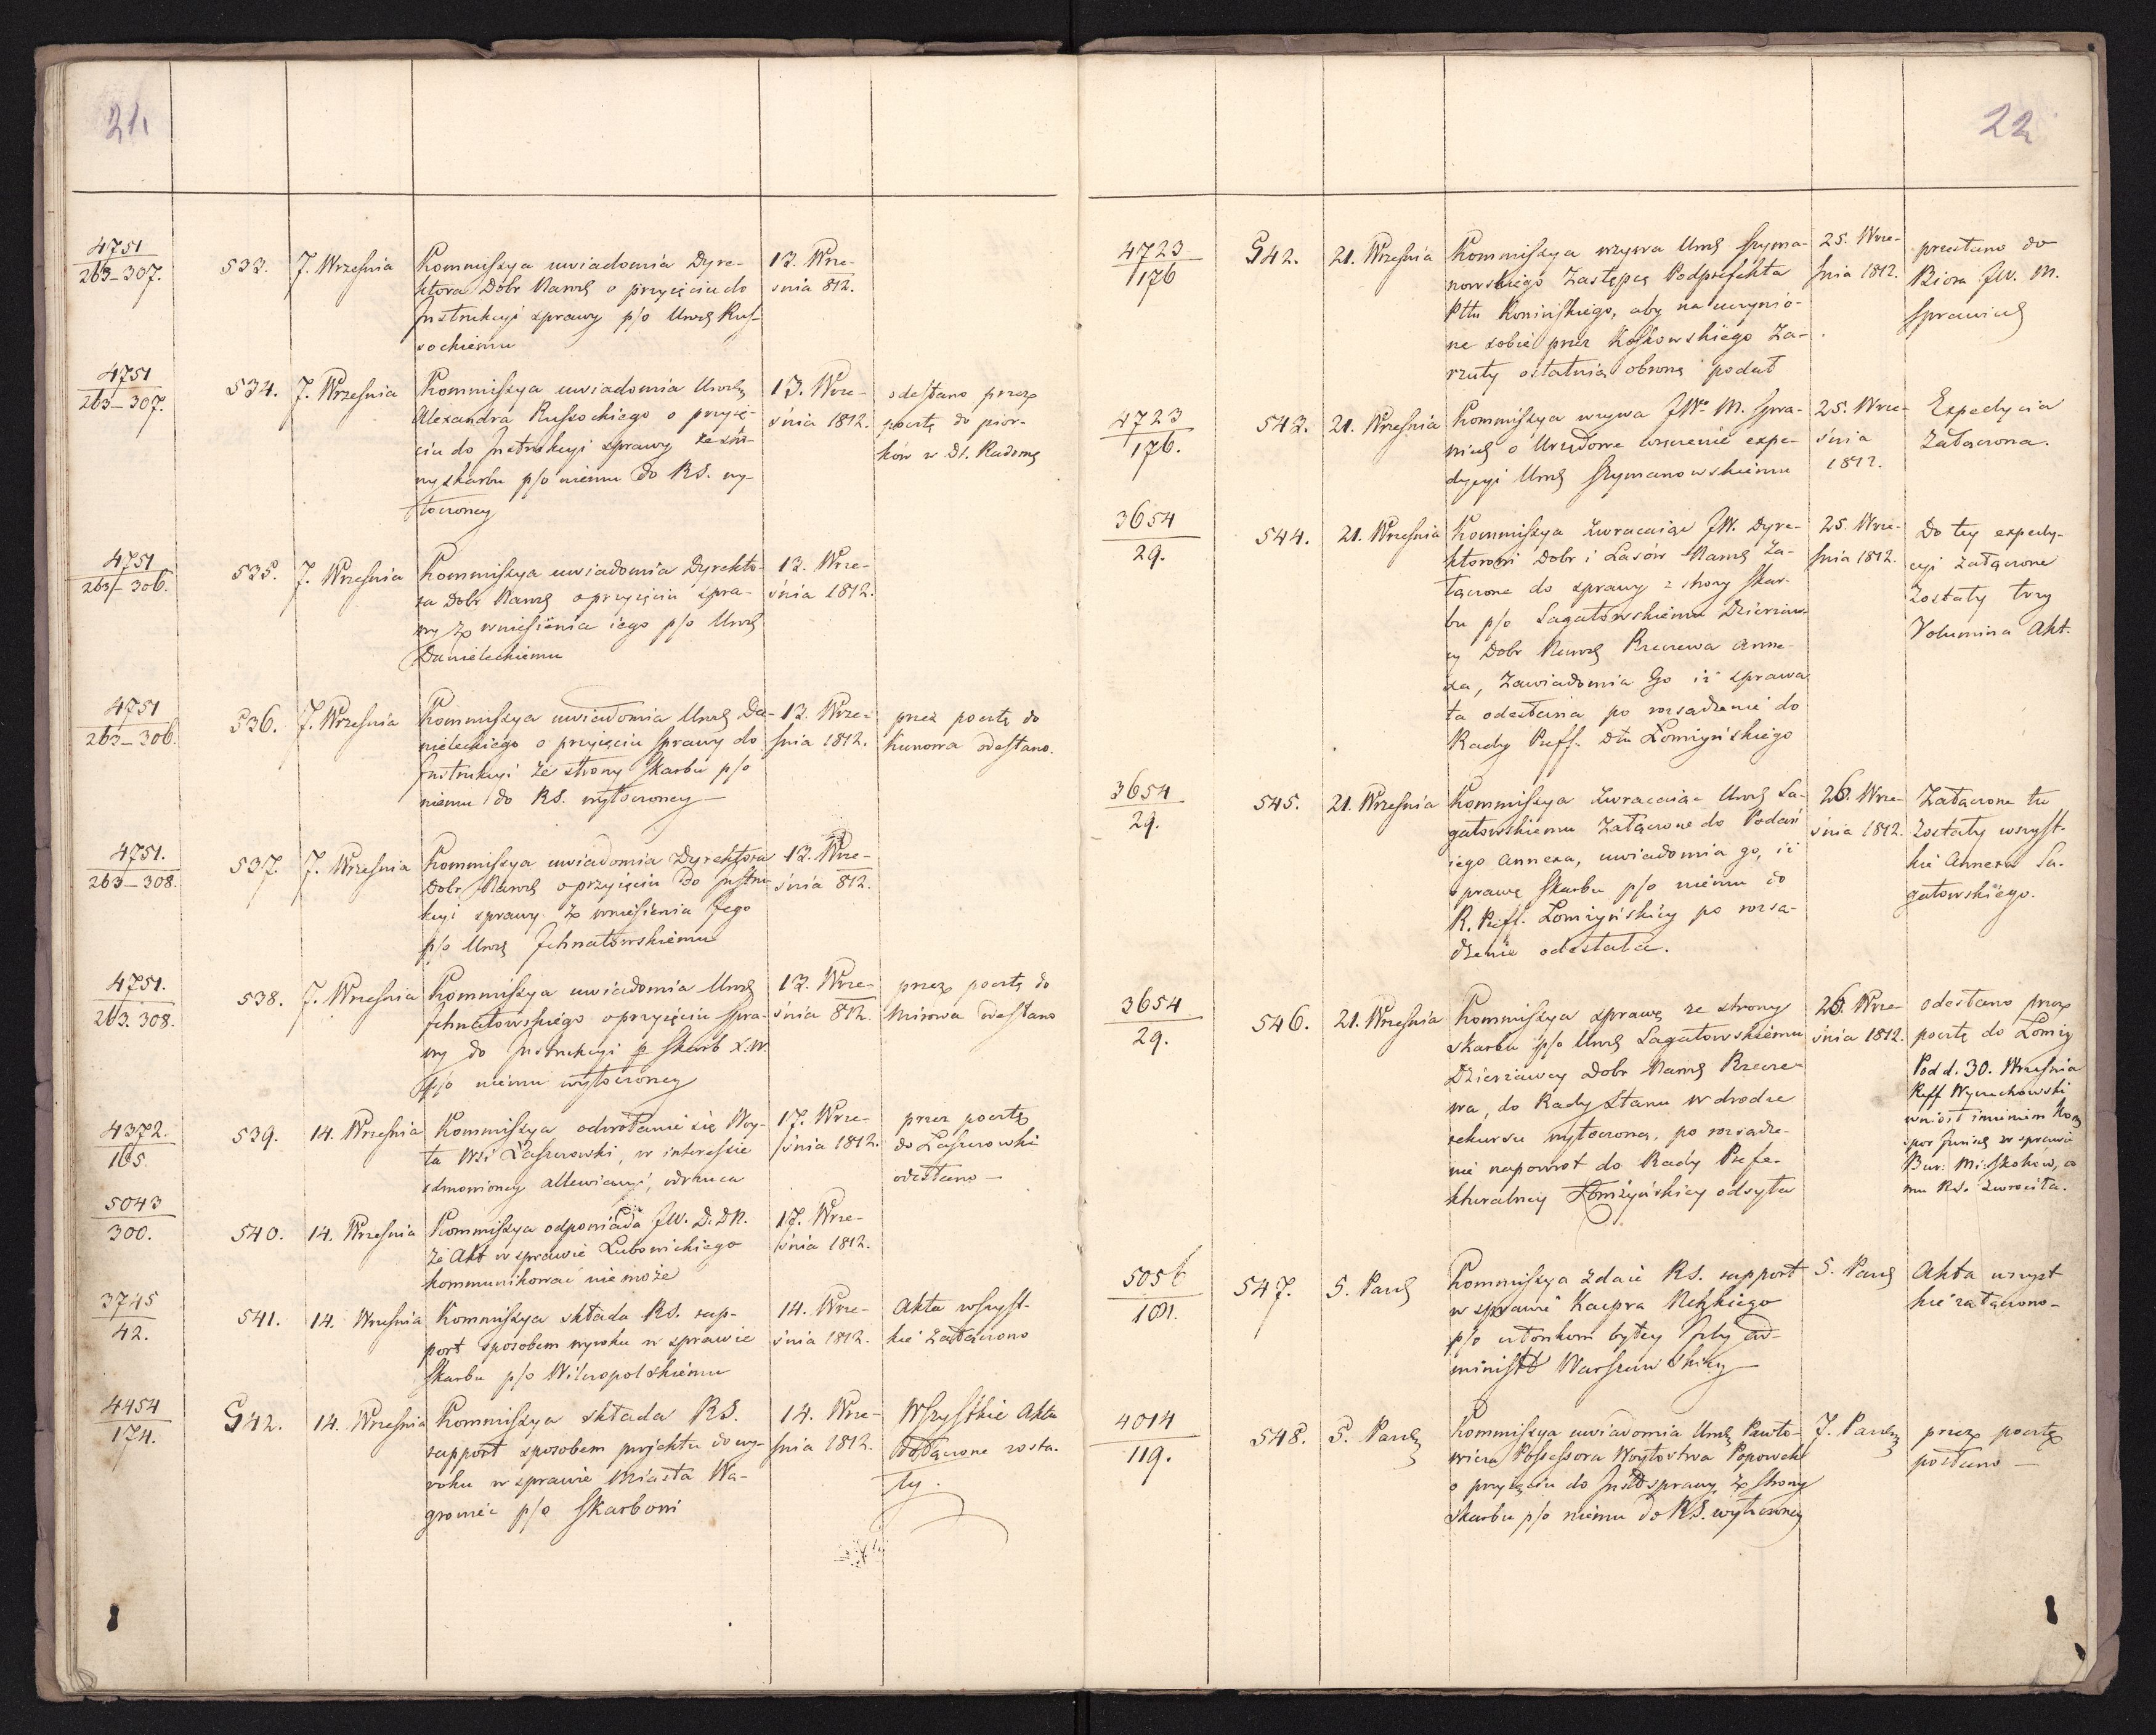 21.
4751
263-307.
533.
7. Września
Kommissya uwiadomia Dyre-
ktora Dobr Narod. o przyięciu do
Instrukcyi sprawy p/o Urod. Rus-
sockiemu
13. Wrze-
śnia 812.
4751
263-307.
534.
7. Września
Kommissya uwiadomia Urod.
Alexandra Russockiego o przyię-
ciu do Instrukcyi sprawy ze stro-
ny skarbu p/o niemu do RS. wy-
toczoney
13. Wrze-
śnia 1812.
odesłano przez
pocztę do
w Dt. Radoms
4751
263-306.
535.
7. Września
Kommissya uwiadomia Dyrekto-
ra Dobr Narod. o przyięciu spra-
wy z wniesienia iego p/o Urod.
Danieleckiemu
13. Wrze-
śnia 1812.
4751
263-306.
536.
7. Września
Kommissya uwiadomia Urod. Da-
nieleckiego o przyięciu sprawy do
Instrukcyi ze strony Skarbu p/o
niemu do RS. wytoczoney
13. Wrze-
śnia 1812.
przez pocztę do
Kunowa odesłano.
4751.
263-308.
537.
7. Września
Kommissya uwiadomia Dyrektora
Dobr Narod. o przyięciu do Instru-
kcyi sprawy z wniesienia Jego
p/o Urod. Ichnatowskiemu
13. Wrze-
śnia 812.
4751.
263. 308.
538.
7. Września
Kommissya uwiadomia Urod.
Ichnatowskiego o przyięciu spra-
wy do Instrukcyi p. Skarb X.W.
p/o niemu wytoczoney
13. Wrze-
śnia 812.
przez pocztę do
odesłano
4372.
165.
539.
14. Września
Kommissya odwołanie się Woy-
ta Wsi Laszczowski, w interessie
odmowioney allewiacyi, odrzuca
17. Wrze-
śnia 1812.
przez pocztę
do Laszczowski
odesłano
5043
300.
540.
14. Września
Kommissya odpowiada JW. D.DN.
że Akt w sprawie Lubowickiego
kommunikować nie może
17. Wrze-
śnia 1812.
3745
42.
541.
14. Września
Kommissya składa RS. rap-
port sposobem wyroku w sprawie
Skarbu p/o Wilczopolskiemu
14. Wrze-
śnia 1812.
Akta wszyst-
kie załączono
4454
174.
542.
14. Września
Kommissya składa RS.
rapport sposobem projektu do wy-
roku w sprawie Miasta Wą-
growiec p/o Skarbowi
14. Wrze-
śnia 1812.
Wszystkie Akta
dołączone zosta-
ły.
22
4723
176
542.
21. Września
Kommissya wzywa Urod. Szyma-
nowskiego Zastępcę Podprefekta
Pttu Konińskiego, aby na uczynio-
ne sobie przez Koskowskiego Za-
rzuty ostatnią obronę podał
25. Wrze-
śnia 1812.
przesłano do
Biora JW. M.
Sprawied.
4723
176.
543.
21. Września
Kommissya wzywa JWo M. Spra-
wied. o Urzędowe wręczenie expe-
dycyi Urod. Szymanowskiemu
25. Wrze-
śnia
1812.
Expedycia
załączona.
3654
29.
544.
21. Września
Kommissya zwracaiąc JW. Dyre-
ktorowi Dobr i Lasów Narod. za-
łączone do sprawy z strony Skar-
bu p/o Sagatowskiemu Dzierżaw-
cy Dobr Narod. Brczewa Anne-
xa, zawiadomia Go iż sprawa
ta odesłana po rozsądzenie do
Rady Preff. Dtu Łomżyńskiego
25. Wrze-
śnia 1812.
Do tey expedy-
cyi załączone
zostały trzy
Volumina Akt.
3654
29.
545.
21. Września
Kommissya zwracaiąc Urod. Sa-
gatowskiemu załączone do Podań
iego Annexa, uwiadomia go, iż
sprawę Skarbu p/o niemu do
R. Preff. Łomżyńskiey po rozsą-
dzenie odesłała.
26. Wrze-
śnia 1812.
Załączone tu
zostały wszyst-
kie Annexa Sa-
gatowskiego.
3654
29.
546.
21. Września
Kommissya sprawę ze strony
Skarbu p/o Urod. Sagatowskiemu
Dzierżawcy Dobr Narod. Brcze-
wa, do Rady Stanu w drodze
rekursu wytoczoną, po rozsądze-
nie napowrot do Rady Prefe-
kturalney Łomżyńskiey odsyła
26. Wrze-
śnia 1812.
odesłano przez
pocztę do Łomży
Pod d. 30. Września
Reff Wyczechowski
wniosł imieniem
w sprawie
mu R.S. zwrociła.
5056
101.
547.
5. Paźd.
Kommissya zdaie RS. rapport
w sprawie Kacpra
p/o członkom byłey Izby Ad-
ministr. Warszawskiey
5. Paźd.
Akta wszyst
kie załączono
4014
119.
548.
5. Paźdz.
Kommissya uwiadomia Urod. Pawło-
wicza Possessora Woytostwa
o przyięciu do Instr. sprawy z strony
Skarbu p/o niemu do RS. wytoczoney
7. Paźdz.
przez pocztę
posłano